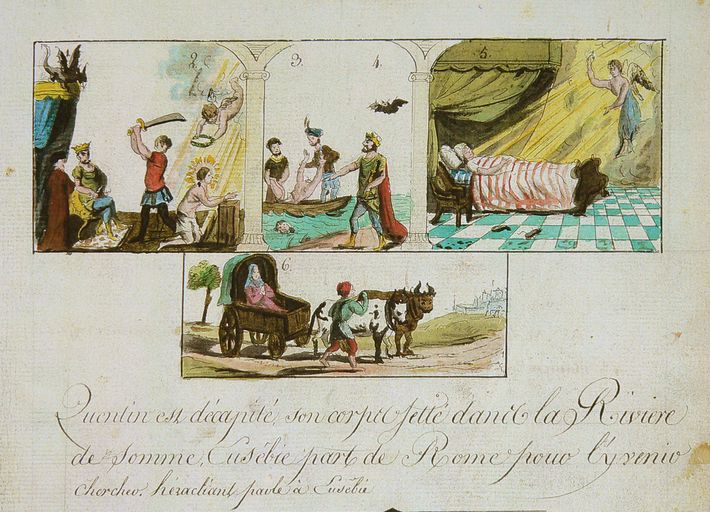 2.
3.
4.
5.
6.
Quentin est décapité, son corps jetté dans la Riviere
de Somme, Eusébie part de Rome pour l'y venir
chercher. héracliant parle à Eusébie